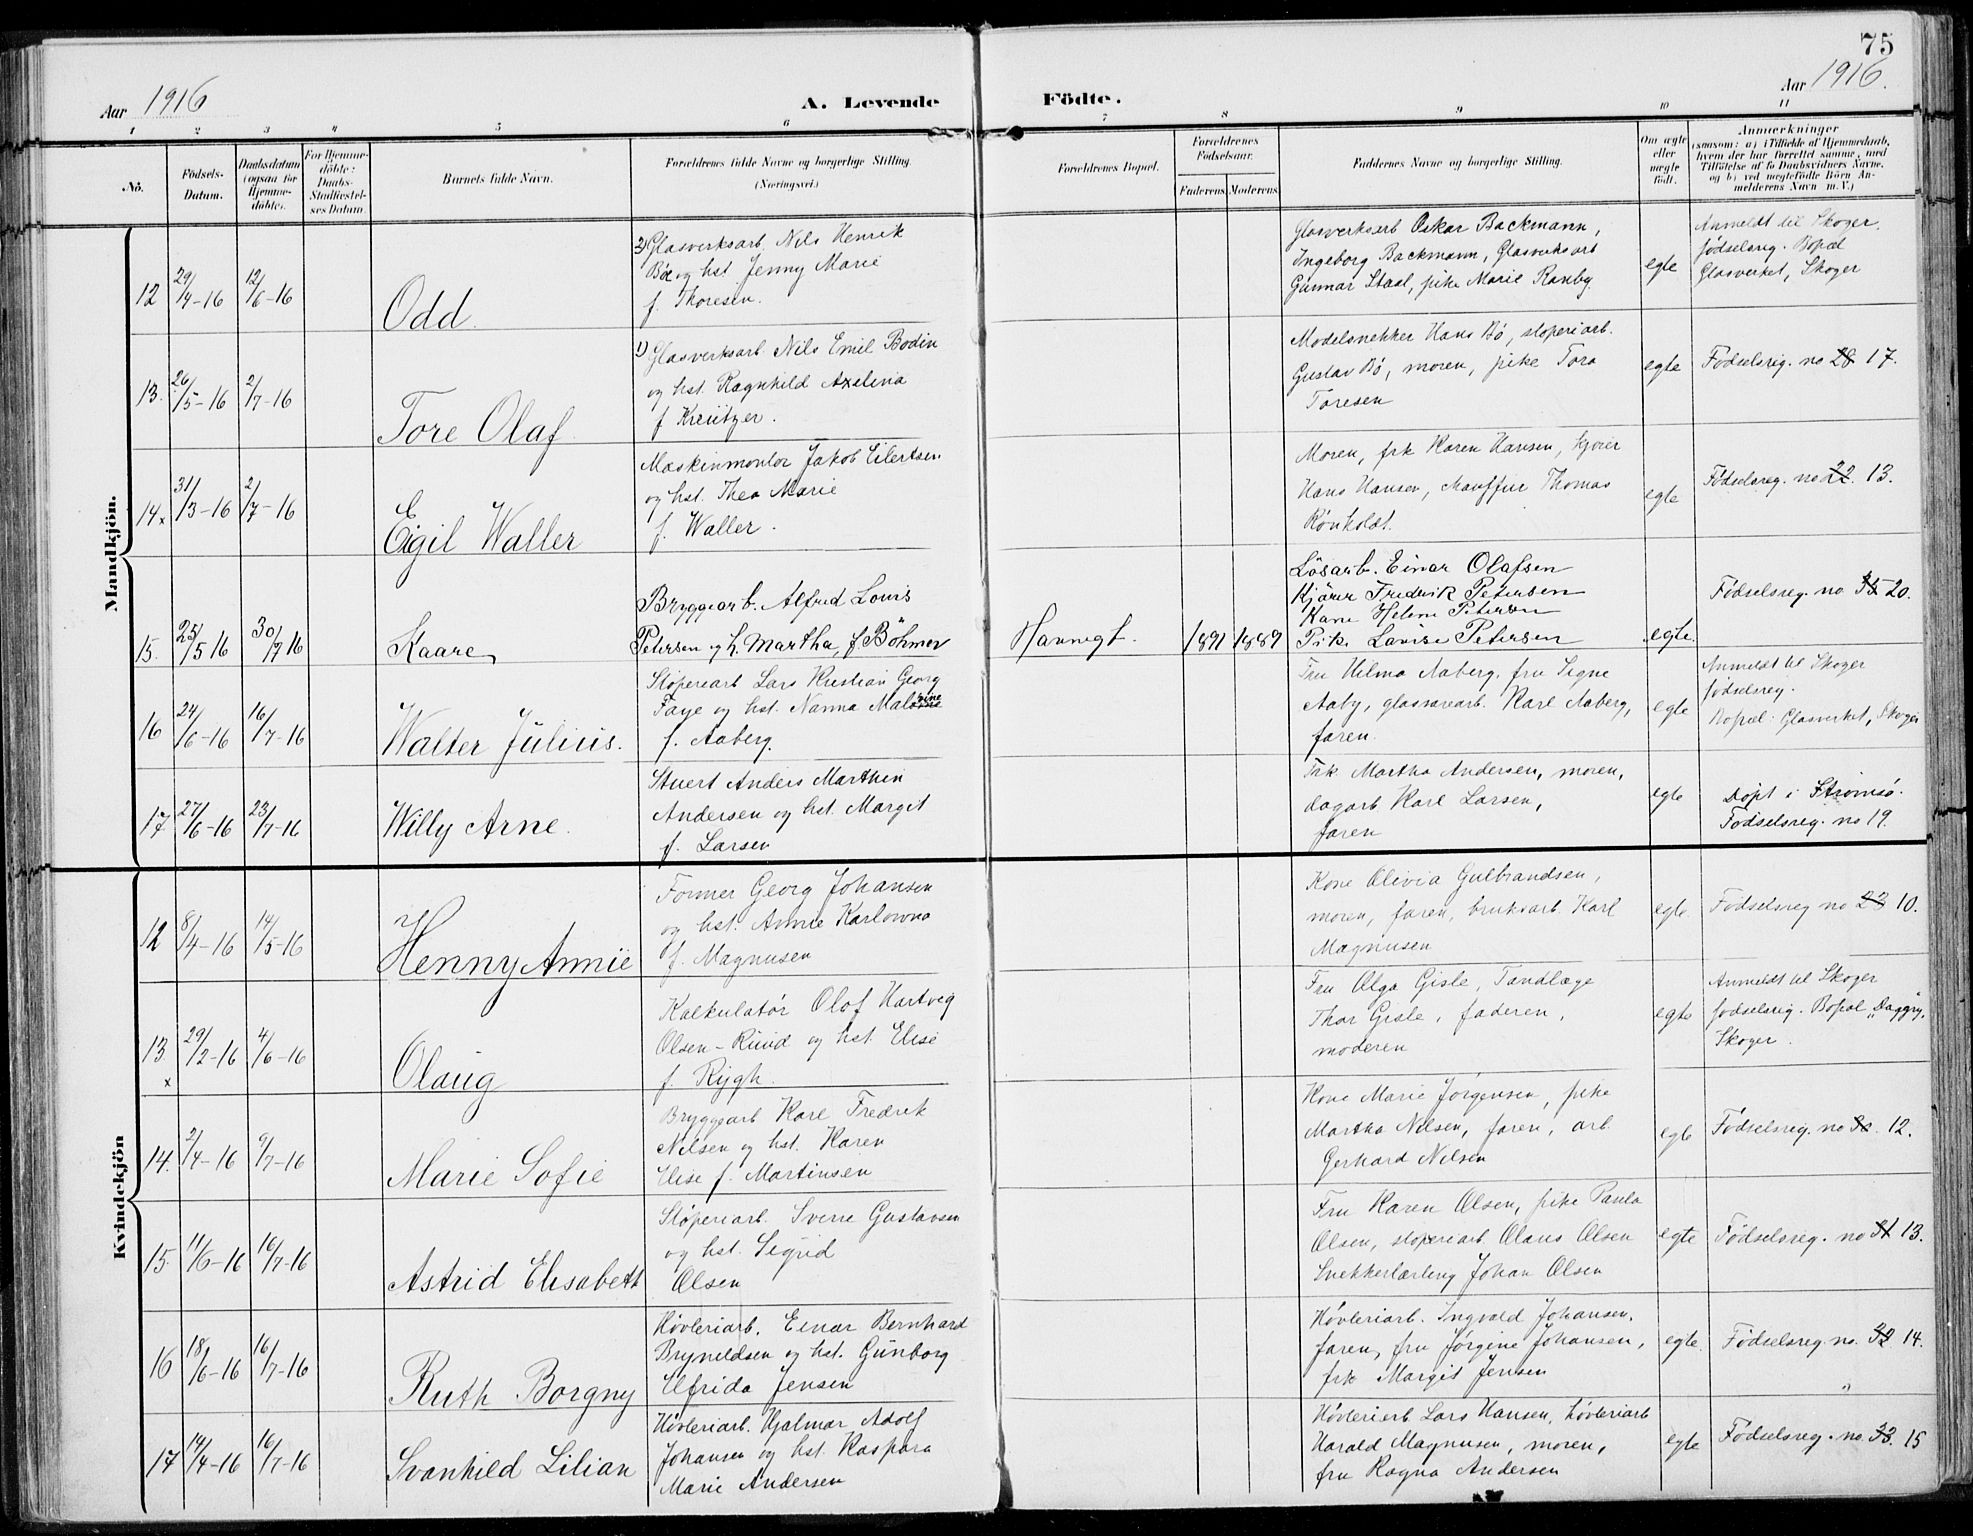 75
Aar 1916
A. Levende
Födte.
Aar 1916.
1 2 3 4 5 6 7 8 9 10 11
No.
Födsels-
Datum.
Daabsdatum
(ogsaa for
Hjemme-
döbte).
For Hjemme-
döbte:
Daabs-
Stadfæstel-
ses Datum.
Barnets fulde Navn.
Forældrenes fulde Navne og borgerlige Stilling.
(Næringsvei.)
Forældrenes Bopæl.
Forældrenes
Födselsaar.
Faderens. Moderens.
Faddernes Navne og borgerlige Stilling.
Om ægte
eller
uægte
født.
Anmærkninger
(saasom: a) i Tilfælde af Hjemmedaab,
hvem der har forrettet samme, med
Tilföielse af to Daabsvidners Navne,
og b) ved uægtefödte Börn An-
melderens Navn m. V.)
Mandkjön.
12 29/4-16 12/6-16
Odd.
2) Glasverksarb. Nils Henrik
Bö og hst. Jenny Marie
f. Thoresen.
Glasverksarb Oskar Backmann,
Ingeborg Backmann, Glasverksarb
Gunnar Staal, pike Marie Ranby.
egte
Anmeldt til Skoger
fødselsreg. Bopæl
Glasverket, Skoger
13. 26/5-16 2/7-16
Tore Olaf
1) Glasverksarb Nils Emil Bodin
og hst. Ragnhild Axelina
f. Kreutzer.
Modelsnekker Hans Bö, støperiarb.
Gustav Bö, moren, pike Tora
Toresen
egte
Fødselsreg. no 28 17.
14x 31/3-16 2/7-16
Eigil Waller
Maskinmontør Jakob Eilertsen
og hst. Thea Marie
f. Waller.
Moren, frk Karen Hansen, kjører
Hans Hansen, chauffør Thomas
Rönholdt.
egte
Fødselsreg. no 22. 13.
15. 25/5 16 30/7 16
Kaare
Bryggearb. Alfred Louis
Petersen og h. Martha f. Böhmer
Havnegt.
1891 1889
Lösarb. Einar Olafsen
Kjörer Frederik Petersen
Kone Helene Petersen
Pike Lovise Petersen
egte.
Fødselsreg. no 35 20.
16 24/6-16 16/7-16
Walter Julius.
Støperiarb Lars Kristian Georg
Faye og hst. Nanna
f. Aaberg.
Fru Hilma Aaberg, fru Signe
Aaby, glassarb. Karl Aaberg,
faren.
egte
Anmeldt til Skoger
fødselsreg.
Bopæl: Glasverket, Skoger
17 27/6-16 23/7-16
Willy Arne.
Stuert Anders Marthin
Andersen og hst. Margit
f. Larsen
Frk. Martha Andersen, moren,
dagarb Karl Larsen,
faren
egte
Døpt i Strømsö.
Fødselsreg. no 19.
Kvindekjön
12 8/4-16 14/5-16
Henny Annie
Former Georg Johansen
og hst. Annie Karlowna
f. Magnusen
Kone Olivia Gulbrandsen,
moren, faren, bruksarb. Karl
Magnusen
egte.
Fødselsreg no 23 10.
13 x 29/2-16 4/6-16
Olaug
Kalkulatør Olaf Hartvig
Olsen-Ruud og hst. Elise
f. Rygh.
Fru Olga Gisle, Tandlæge
Thor Gisle, faderen,
moderen
egte
Anmeldt til Skoger
fødselsreg. Bopæl „Daggry"
Skoger.
14. 2/4-16 9/7-16
Marie Sofie
Bryggearb Karl Fredrik
Nilsen og hst. Karen
Elise f. Martinsen
Kone Marie Jørgensen, pike
Martha Nilsen, faren, arb.
Gerhard Nilsen
egte
Fødselsreg. no 30. 12.
15. 11/6-16 16/7-16
Astrid Elisabeth
Støperiarb. Sverre Gustavsen
og hst. Sigrid
Olsen
Fru Karen Olsen, pike Paula
Olsen, støperiarb Olaus Olsen
Snekkerlærling Johan Olsen
egte
Fødselsreg. no 31 13.
16 18/6-16 16/7-16
Ruth Borgny
Høvleriarb. Einar Bernhard
Bryneldsen og hst. Gunborg
Elfrida Jensen
Høvleriarb. Ingvald Johansen,
faren, fru Jørgine Johansen,
frk Margit Jensen
egte.
Fødselsreg. no. 32 14.
17 14/4-16 16/7-16
Svanhild Lilian
Høvleriarb. Hjalmar Adolf
Johansen og hst. Kaspara
Marie Andersen
Høvleriarb Lars Hansen, høvleriarb
Harald Magnusen, moren,
fru Ragna Andersen
egte
Fødselsreg. no. 33. 15